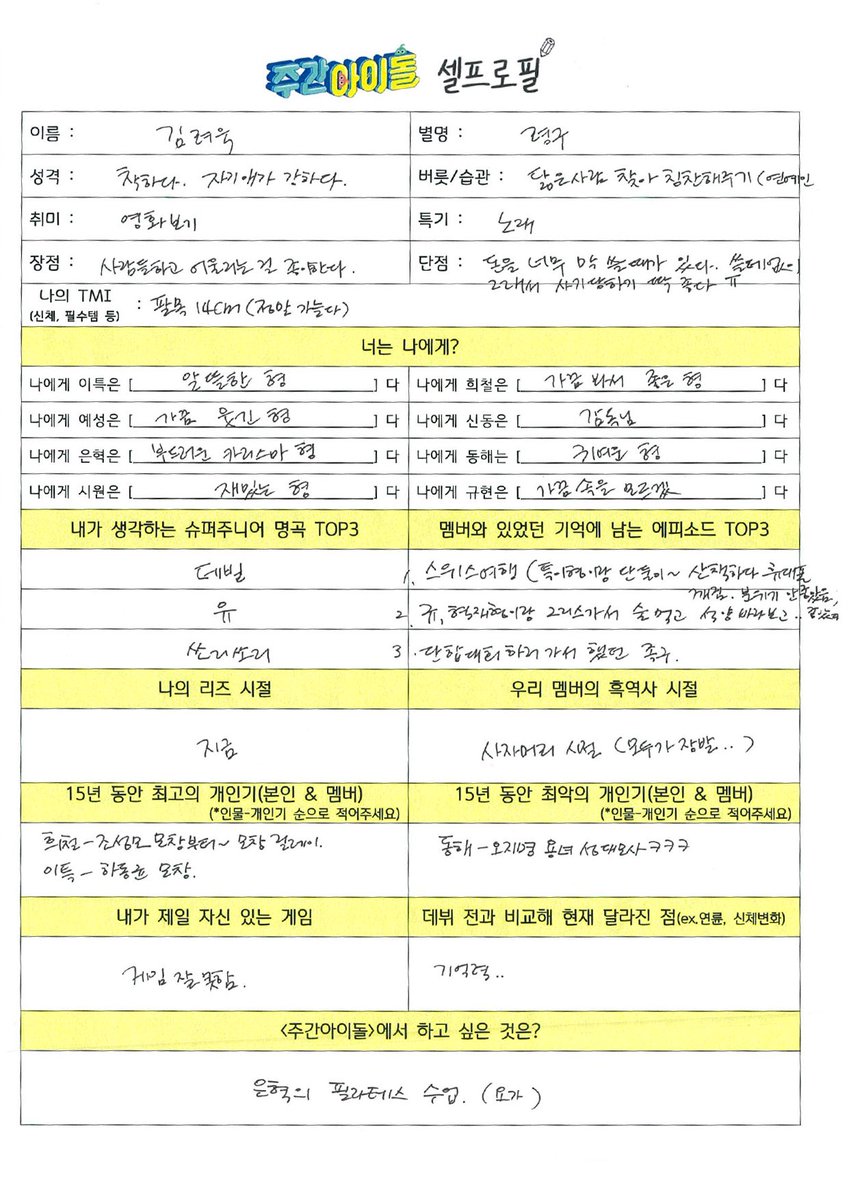 주간아이돌 셀프로필
이름 : 김려욱
별명 : 령구
성격 : 착하다. 자기애가 강하다.
버릇/습관 : 닮은사람 찾아 칭찬해주기 (연예인
취미 : 영화보기
특기 : 노래
장점 : 사람들하고 어울리는걸 좋아한다.
단점 : 돈을 너무 막 쓸때가 있다.. 쓸데없이
그래서 사기당하기 딱 좋다 ㅠ
나의 TMI
(신체, 필수템 등)
: 팔목 14cm (정말 가늘다)
너는 나에게?
나에게 이특은 [ 알뜰한 형 ] 다
나에게 희철은 [ 가끔 봐서 좋은 형 ] 다
나에게 예성은 [ 가끔 웃긴 형 ] 다
나에게 신동은 [ 감독님 ] 다
나에게 은혁은 [ 부드러운 카리스마 형 ] 다
나에게 동해는 [ 귀여운 형 ] 다
나에게 시원은 [ 재밌는 형 ] 다
나에게 규현은 [ 가끔 속을 모르겠 ] 다
내가 생각하는 슈퍼주니어 명곡 TOP3
데빌
유
쏘리쏘리
멤버와 있었던 기억에 남는 에피소드 TOP3
1. 스위스여행 (특이형이랑 단둘이~ 산책하다 휴대폰
깨짐. 분위기 안좋았음,
2. 규, 혁재형이랑 그리스가서 술 먹고 석양 바라보고..
3. 단합대회하러 가서 했던 족구.
나의 리즈 시절
지금
우리 멤버의 흑역사 시절
사자머리 시절 (모두가 장발..)
15년 동안 최고의 개인기(본인 & 멤버)
(*인물-개인기 순으로 적어주세요)
희철 - 조성모 모창부터~ 모창 걸레이.
이특 - 하동균 모창.
15년 동안 최악의 개인기(본인 & 멤버)
(*인물-개인기 순으로 적어주세요)
동해 - 오지명 용녀 성대모사 ㅋㅋㅋ
내가 제일 자신 있는 게임
게임 잘 못함.
데뷔 전과 비교해 현재 달라진 점(ex.연륜, 신체변화)
기억력..
<주간아이돌>에서 하고 싶은 것은?
은혁의 필라테스 수업. (요가)